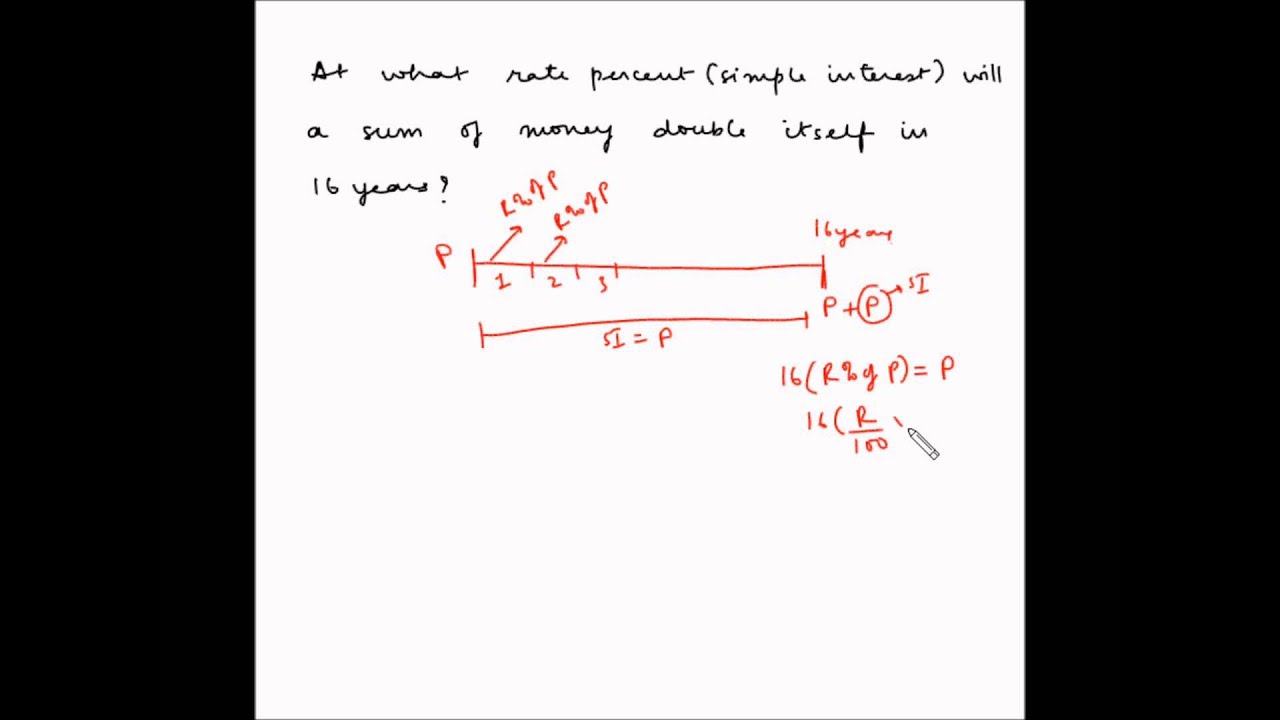 At what rate percent (simple interest) will
a sum of money double itself in
16 years?
R% of P
R% of P
16 years
P
1 2 3
P + P → SI
SI = P
16 (R% of P) = P
16 ( R
100